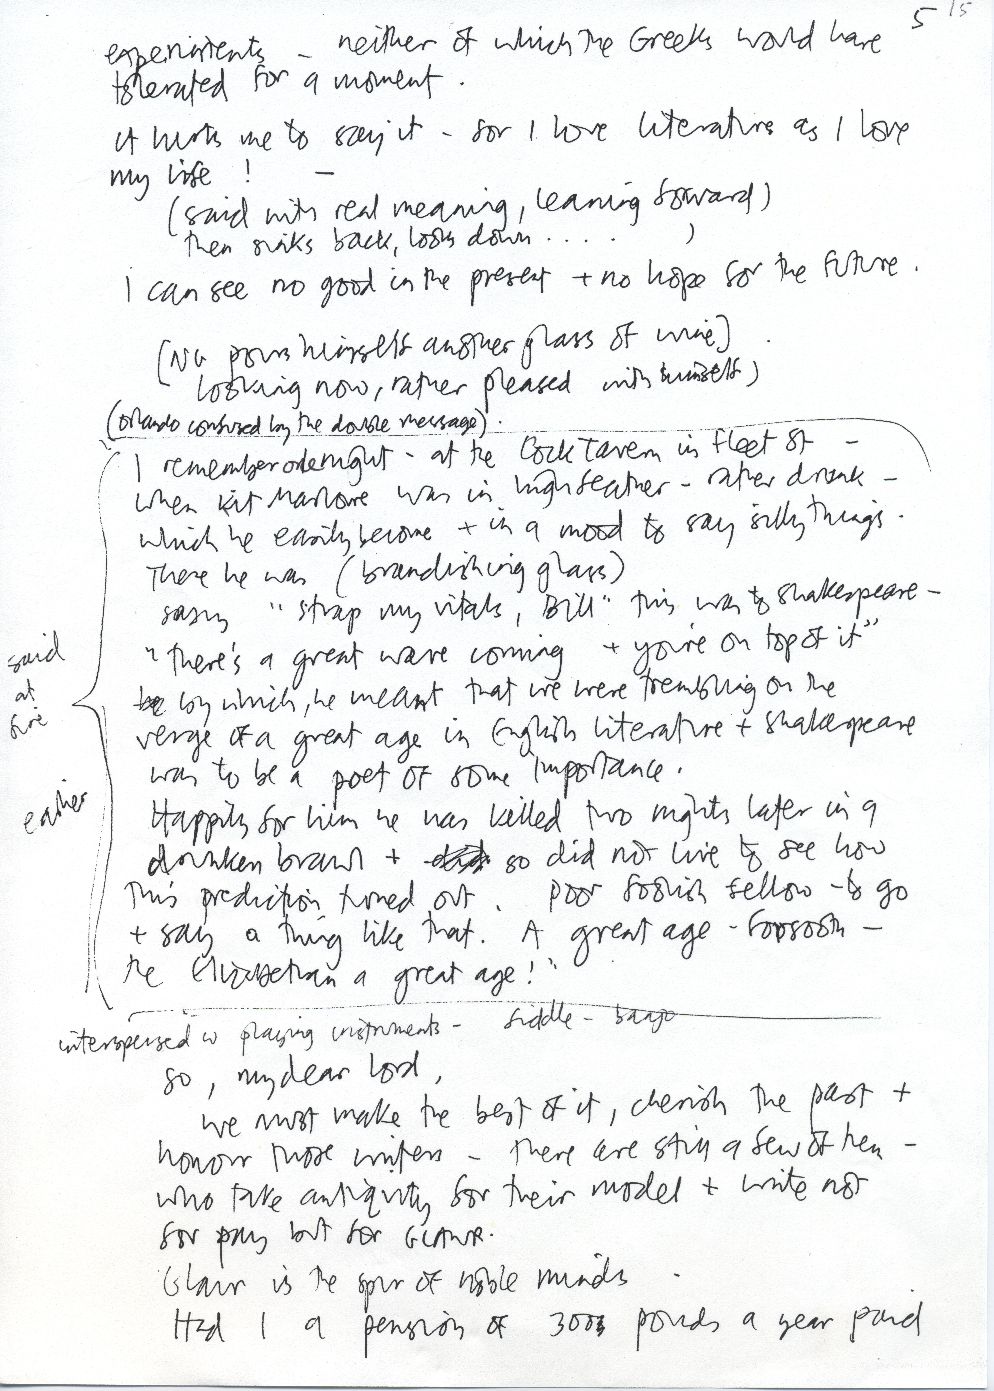 5 15
experiments - neither of which the Greeks would have
tolerated for a moment.
it hurts me to say it - for I love literature as I love
my life! -
(said with real meaning, leaning forward)
then sinks back, looks down .... )
I can see no good in the present + no hope for the future.
(NG pours himself another glass of wine)
looking now, rather pleased with himself)
(Orlando confused by the double message).
I remember one night - at the Cock Tavern in Fleet St -
when Kit Marlowe was in high feather - rather drunk -
which he easily become + in a mood to say silly things.
There he was (brandishing glass)
saying "strap my vitals, Bill" this was to Shakespeare -
"there's a great wave coming + you're on top of it"
by which, he meant that we were trembling on the
verge of a great age in English literature + Shakespeare
was to be a poet of some importance.
Happily for him he was killed two nights later in a
drunken brawl + so did not live to see how
this prediction turned out. Poor foolish fellow - to go
+ say a thing like that. A great age - forsooth -
the Elizabethan a great age!"
said
at
fire
earlier
interspersed w playing instruments - fiddle - banjo
so, my dear Lord,
we must make the best of it, cherish the past +
honour those writers - there are still a few of them -
who take antiquity for their model + write not
for pay but for GLAWR.
Glawr is the spur of noble minds.
Had I a pension of 300 pounds a year paid